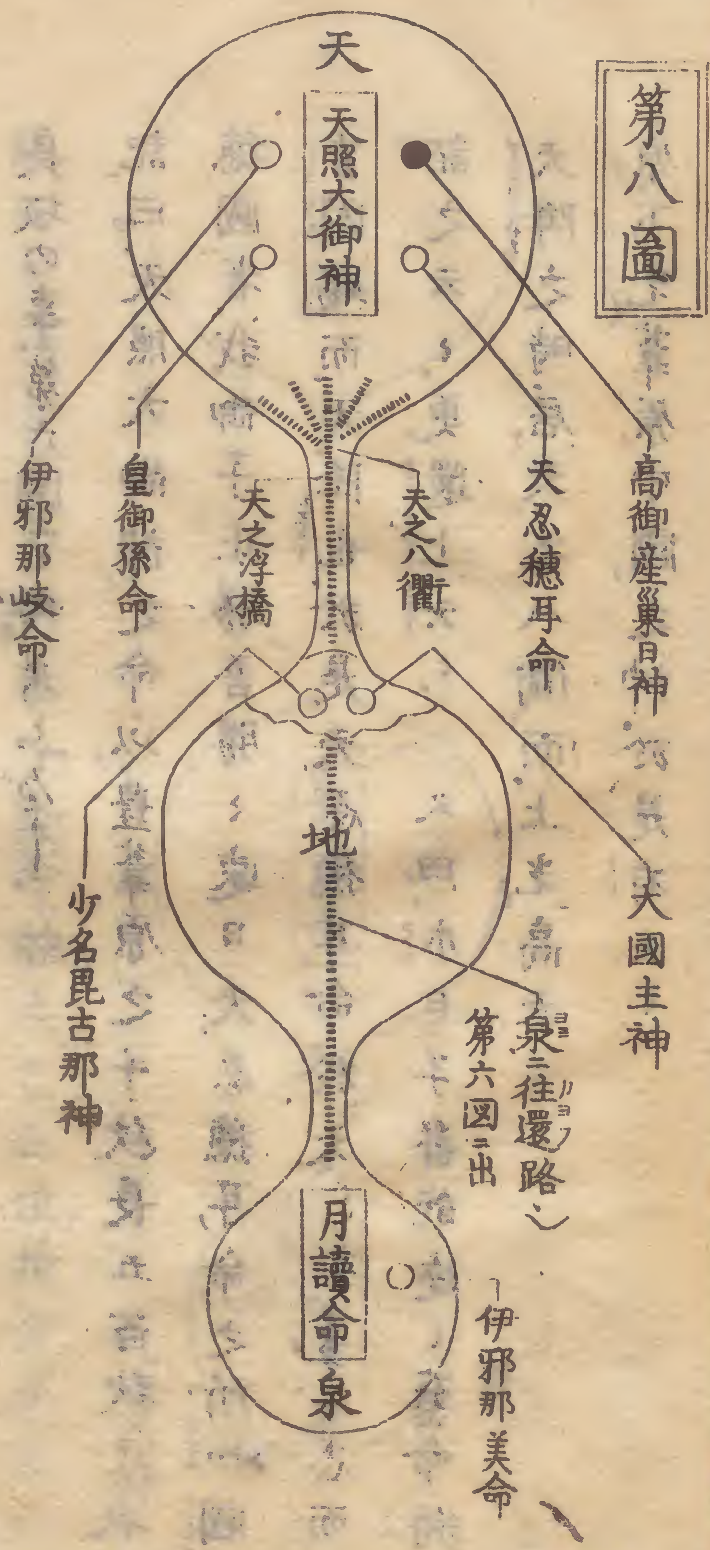 第八圖
天
天照大御神
高御産巣日神
天忍穂耳命
天之八衢
天之浮橋
皇御孫命
伊邪那岐命
大國主神
地
少名毘古那神
泉ニ往還路
ヨミ
カヨフ
第六図ニ出
月讀命
泉
伊邪那美命